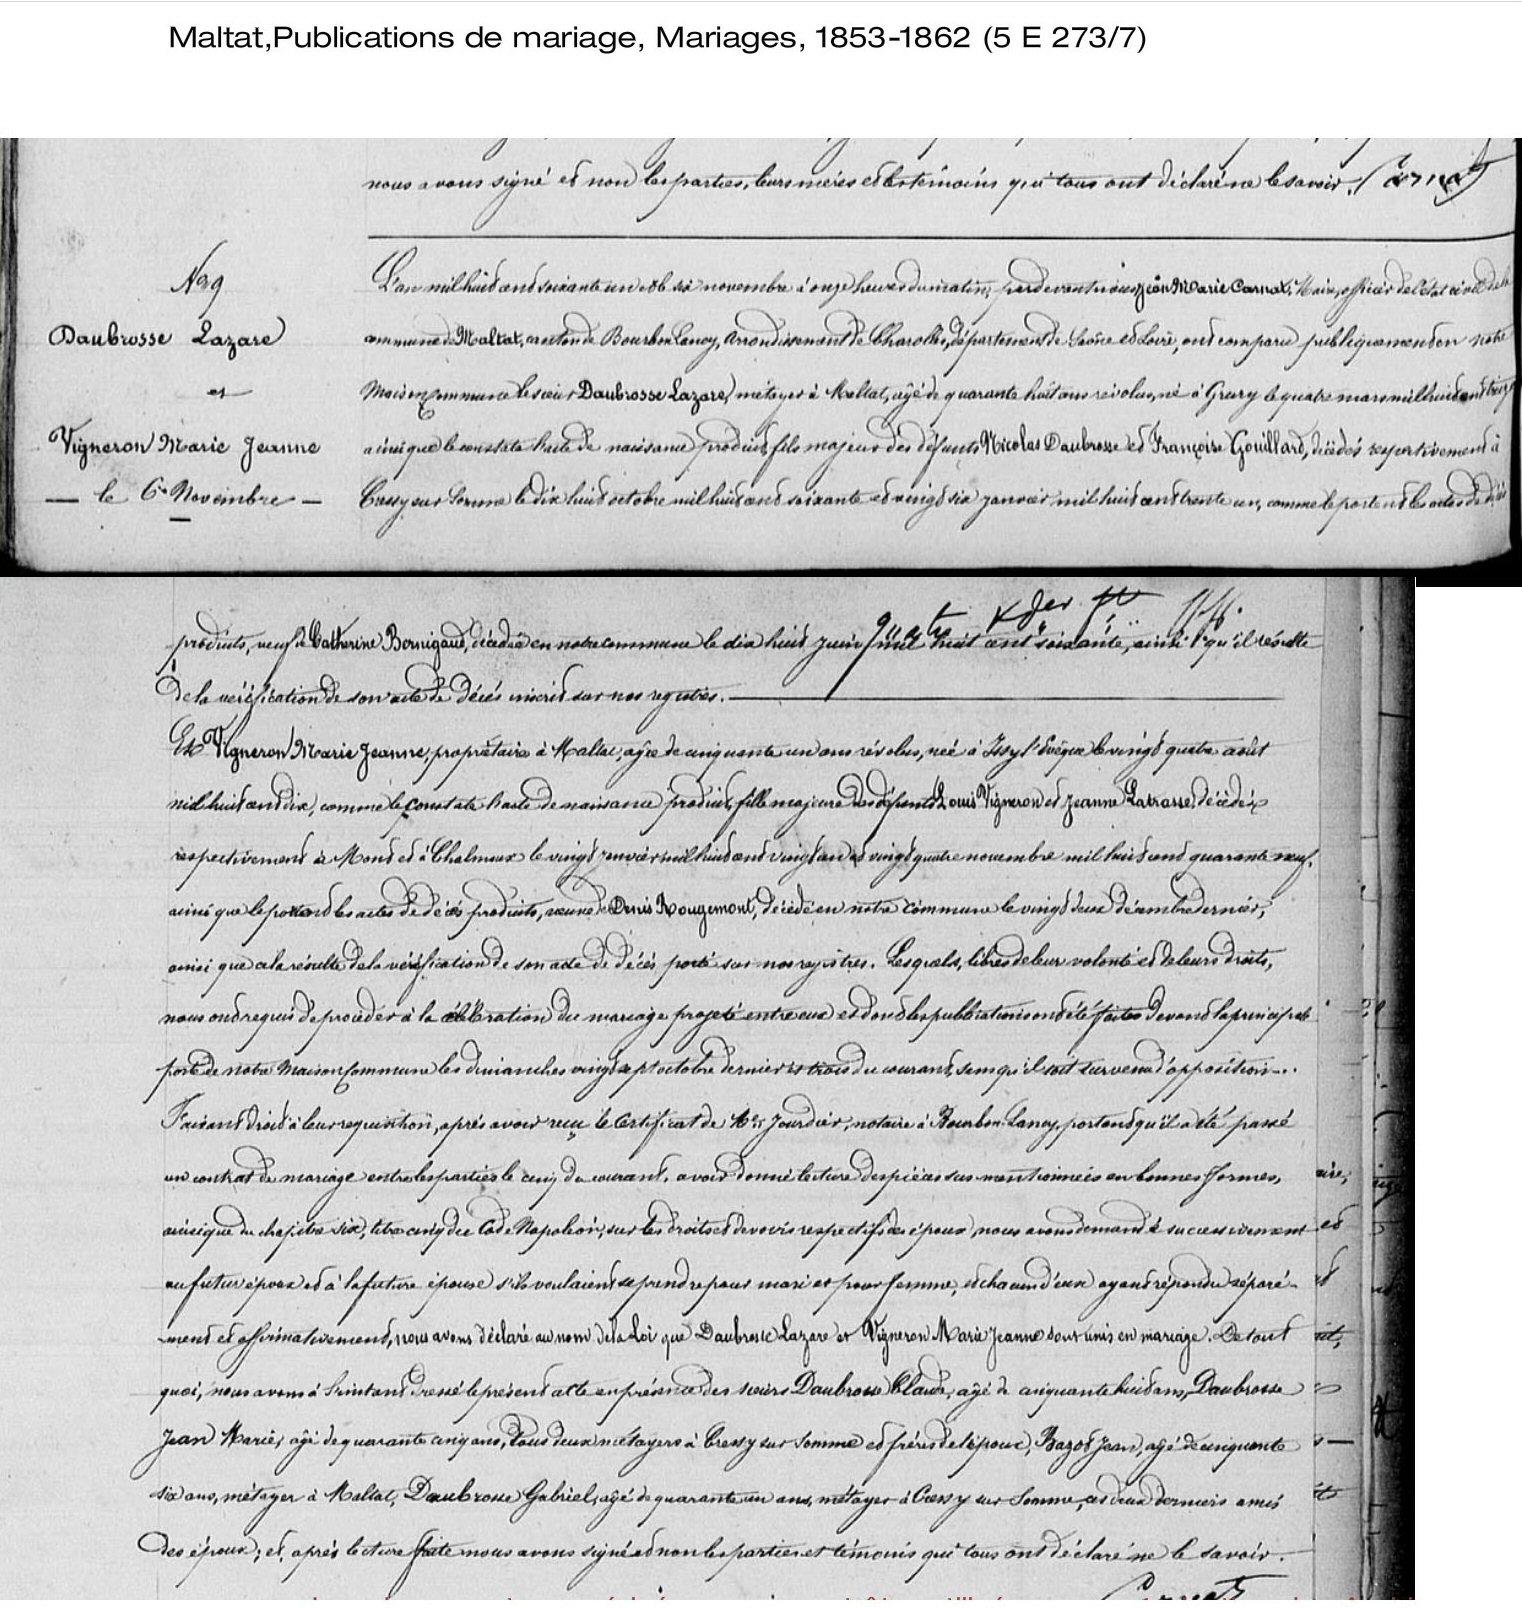 Maltat,Publications de mariage, Mariages, 1853-1862 (5 E 273/7)
nous avons signé et non les parties, leurs mères et les témoins qui tous ont déclaré ne le savoir. Carnat
L'an mil huit cent soixante un et le six novembre à onze heures du matin, pardevant nous Jean Marie Carnat, Maire, officier de l'état civil de la
commune de Maltat, canton de Bourbon Lancy, arrondissement de Charolles, département de Saône et Loire, ont comparu publiquement en notre
Maison Commune le sieur Daubrosse Lazare, métayer à Maltat, agé de quarante huit ans révolus, né à Grury le quatre mars mil huit cent treize
ainsi que le constate l'acte de naissance produit, fils majeur des défunts Nicolas Daubrosse et Françoise Gouillard, décédés respectivement à
Cressy sur Somme le dix huit octobre mil huit cent soixante et vingt six janvier mil huit cent trente un, comme le portent les actes de décès
Daubrosse Lazare
et
Vigneron Marie Jeanne
le 6 Novembre
produits, veuf de Catherine Bernigaud, décédée en notre commune le dix huit juin mil huit cent soixante, ainsi qu'il résulte
de la vérification de son acte de décès inscrit sur nos registres.
Et Vigneron Marie Jeanne, propriétaire à Maltat, agée de cinquante un ans révolus, née à Issy l'Evêque le vingt quatre août
mil huit cent dix, comme le constate l'acte de naissance produit, fille majeure des défunts Louis Vigneron et Jeanne Latrasse, décédés
respectivement à Mont et à Chalmoux le vingt janvier mil huit cent vingt un et vingt quatre novembre mil huit cent quarante neuf,
ainsi que le portent les actes de décès produits, veuve de Denis Rougemont, décédé en notre commune le vingt deux décembre dernier,
ainsi que cela résulte de la vérification de son acte de décès porté sur nos registres. Lesquels, libres de leur volonté et de leurs droits,
nous ont requis de procéder à la célébration du mariage projeté entre eux et dont les publications ont été faites devant la principale
porte de notre Maison Commune les dimanches vingt sept octobre dernier et trois du courant, sans qu'il soit survenu d'opposition.
Faisant droit à leur requisition, après avoir reçu le Certificat de Me Jourdier, notaire à Bourbon-Lancy, portant qu'il a été passé
un contrat de mariage entre les parties le cinq du courant, avoir donné lecture des pièces sus mentionnées en bonnes formes,
ainsi que du chapitre six, titre cinq du Code Napoléon, sur les droits et devoirs respectifs des époux, nous avons demandé successivement
au futur époux et à la future épouse s'ils voulaient se prendre pour mari et pour femme, et chacun d'eux ayant répondu séparé-
ment et affirmativement, nous avons déclaré au nom de la Loi que Daubrosse Lazare et Vigneron Marie Jeanne sont unis en mariage. De tout
quoi, nous avons à l'instant dressé le présent acte en présence des sieurs Daubrosse Claude, agé de cinquante huit ans, Daubrosse
Jean Marie, agé de quarante cinq ans, tous deux métayers à Cressy sur Somme et frères de l'époux, Bazot Jean, agé de cinquante
six ans, métayer à Maltat, Daubrosse Gabriel, agé de quarante un ans, métayer à Cressy sur Somme, ces deux derniers amis
des époux; et, après lecture faite nous avons signé et non les parties et témoins qui tous ont déclaré ne le savoir.
Carnat